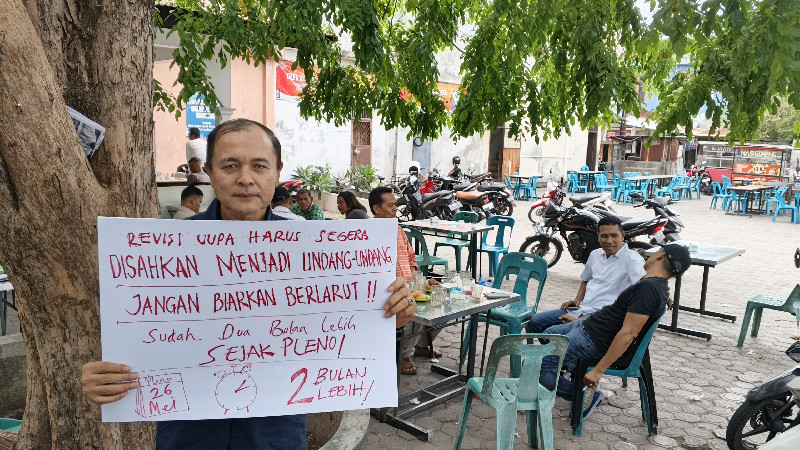 REVISI UUPA HARUS SEGERA
DISAHKAN MENJADI UNDANG-UNDANG
JANGAN BIARKAN BERLARUT !!
Sudah Dua Bulan Lebih
SEJAK PLENO!
26
Mei
2 BULAN
LEBIH!